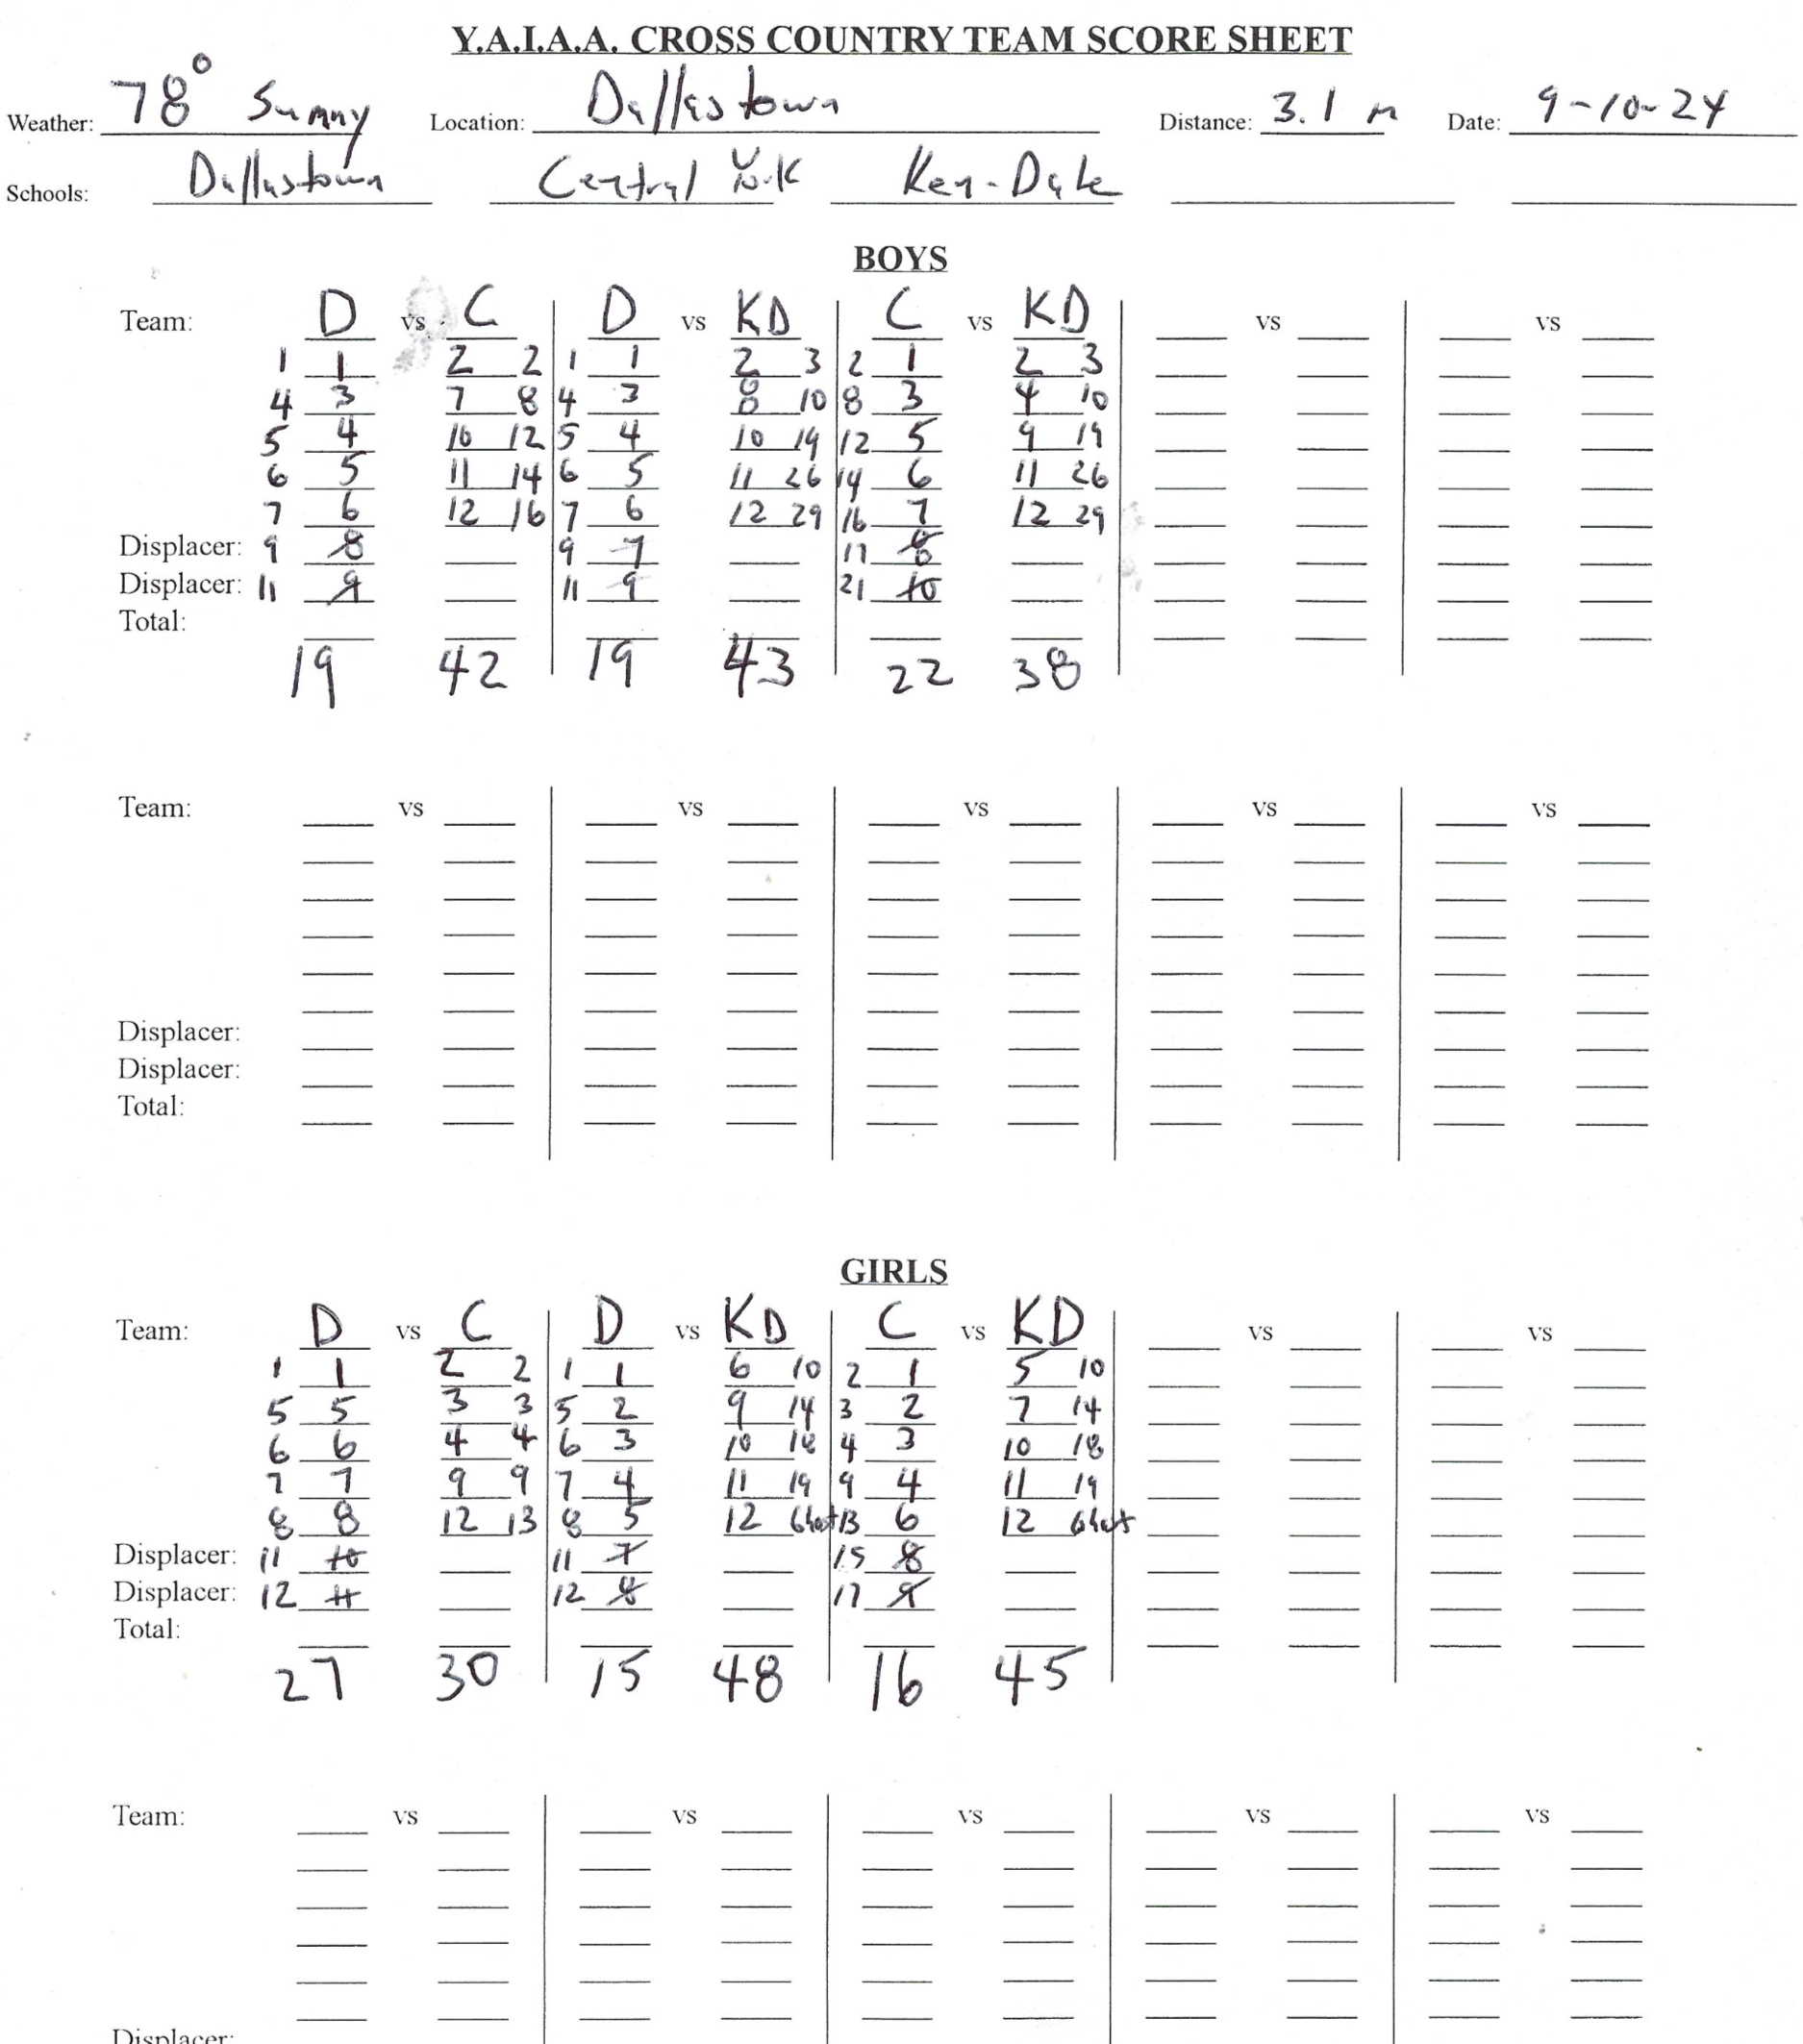 Y.A.I.A.A. CROSS COUNTRY TEAM SCORE SHEET
Weather: 78° Sunny Location: Dallastown Distance: 3.1 m Date: 9-10-24
Schools: Dallastown Central York Ken-Dale
BOYS
Team: D vs C D vs KD C vs KD vs vs
1 1 2 2 1 1 2 3 2 1 2 3
4 3 7 8 4 3 8 10 8 3 4 10
5 4 10 12 5 4 10 19 12 5 9 19
6 5 11 14 6 5 11 26 14 6 11 26
7 6 12 16 7 6 12 29 16 7 12 29
Displacer: 9 8 9 7 17 8
Displacer: 11 9 11 9 21 10
Total:
19 42 19 43 22 38
Team: vs vs vs vs vs
Displacer:
Displacer:
Total:
GIRLS
Team: D vs C D vs KD C vs KD vs vs
1 1 2 2 1 1 6 10 2 1 5 10
5 5 3 3 5 2 9 14 3 2 7 14
6 6 4 4 6 3 10 18 4 3 10 18
7 7 9 9 7 4 11 19 9 4 11 19
8 8 12 13 8 5 12 Ghost 13 6 12 Ghost
Displacer: 11 10 11 7 15 8
Displacer: 12 11 12 8 17 9
Total:
27 30 15 48 16 45
Team: vs vs vs vs vs
Displacer: